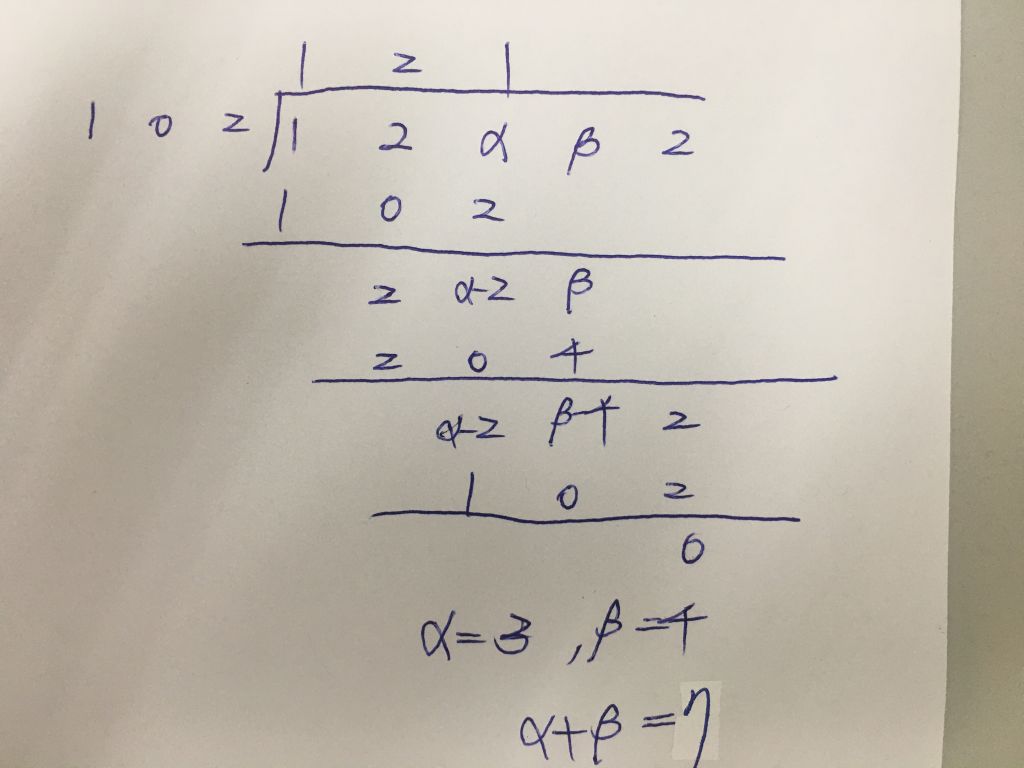 1 2 1
1 0 2 1 2 α β 2
1 0 2
2 α-2 β
2 0 4
α-2 β-4 2
1 0 2
0
α=3 , β=4
α+β=7